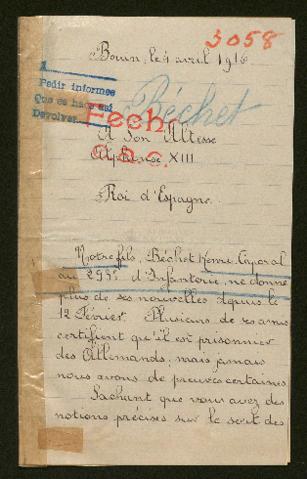 3058
le 4 avril 1916
1
Pedir informes
Que se haga así
Devolver
Béchet
Fech.
C.a.c.
A Son Altesse
Alphonse XIII
Roi d'Espagne.
Notre fils, Béchet Henri, Caporal
au 293e d'Infanterie, ne donne
plus de ses nouvelles depuis le
12 Février. Plusieurs de ses amis
certifient qu'il est prisonnier
des Allemands; mais jamais
nous avons de preuves certaines.
Sachant que vous avez des
notions précises sur le sort des